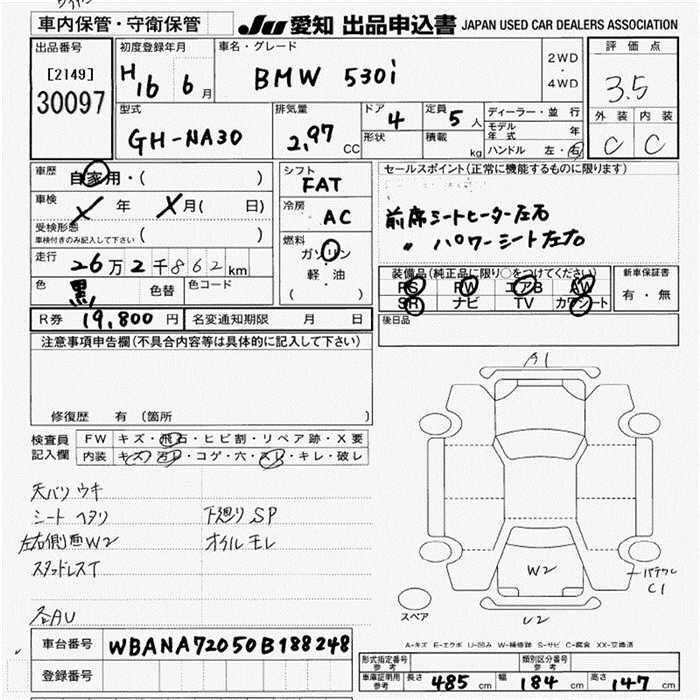 車内保管・守衛保管
JU 愛知 出品申込書 JAPAN USED CAR DEALERS ASSOCIATION
出品番号
[2149]
30097
初度登録年月
H16 6月
車名・グレード
BMW 530i
2WD
・
4WD
評価点
3.5
外装 内装
C C
型式
GH-NA30
排気量
2,97 CC
ドア 4
形状
定員 5人
積載 kg
ディーラー・並行
モデル年式 年
ハンドル 左・右
車歴
自家用・( )
車検 X年 X月( 日)
受検形態
車検付きのみ記入して下さい ( )
走行 26万2千862km
色 黒 色替 色コード
R券 19,800円 名変通知期限 月 日
シフト
FAT
冷房
AC
燃料
ガソリン
軽・油
( )
セールスポイント(正常に機能するものに限ります)
前席シートヒーター左右
〃 パワーシート左右
装備品(純正品に限り○をつけてください)
PS PW エアB AW
SR ナビ TV カワシート
新車保証書
有・無
後日品
注意事項申告欄(不具合内容等は具体的に記入して下さい)
修復歴 有(箇所 )
検査員記入欄
FW キズ・飛石・ヒビ割・リペア跡・X要
内装 キズ・汚レ・コゲ・穴・スレ・キレ・破レ
天バリ ウキ
シート ヘタリ 下廻り SP
左右側面W2 オイル モレ
スタッドレスT
各AU
A1
W2
バテワレ
C1
スペア
U2
A-キズ E-エクボ U-凹み W-補修跡 S-サビ C-腐食 XX-交換済
車台番号 WBANA72050B188248
登録番号
形式指定番号 参考
類別区分番号 参考
車庫証明用 参考 長さ 485cm 幅 184cm 高さ 147cm